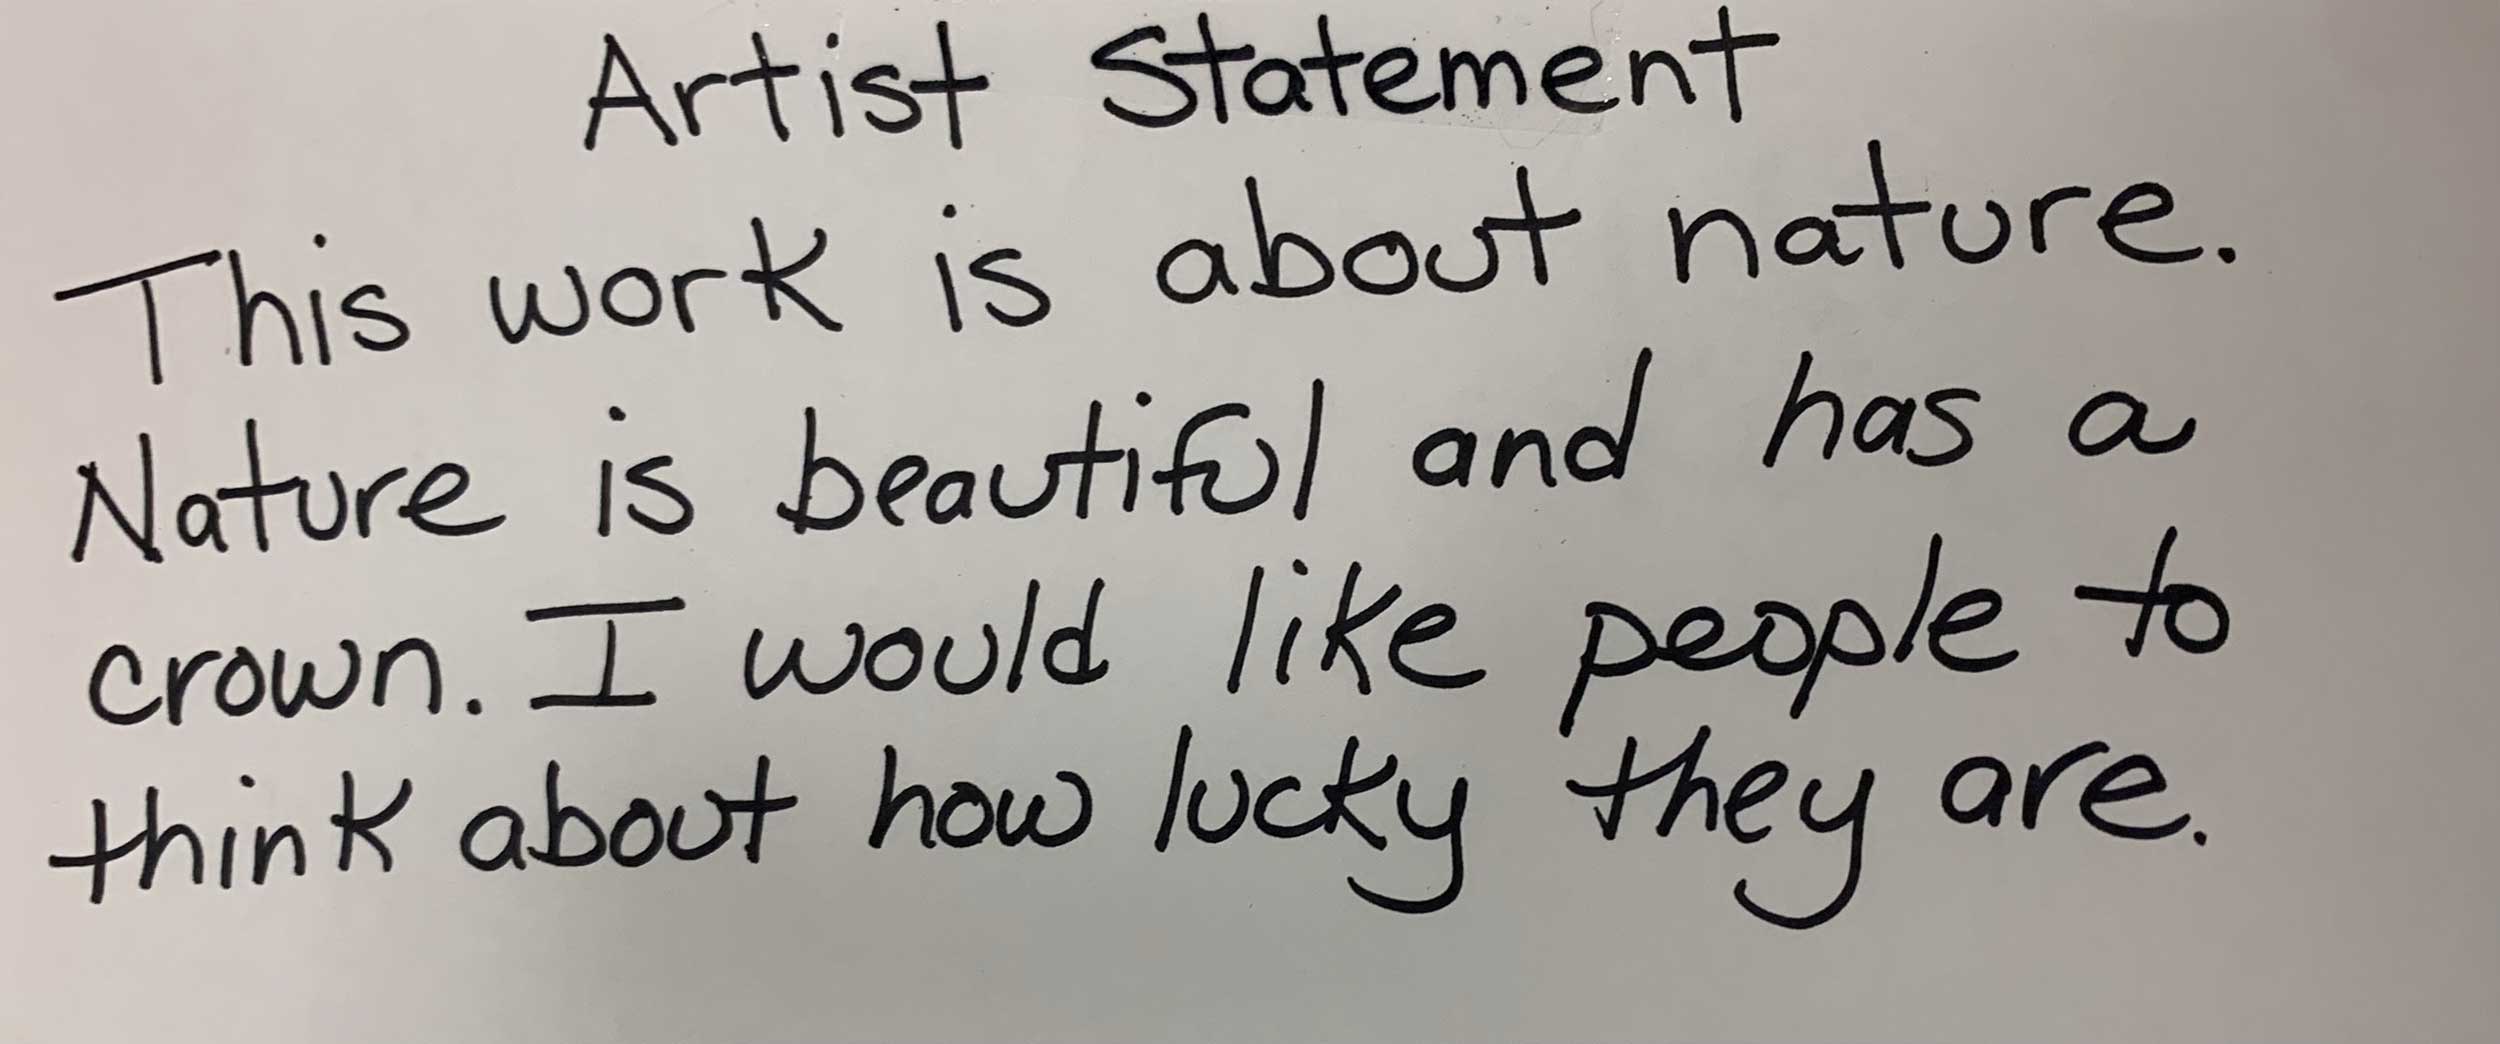 Artist Statement
This work is about nature.
Nature is beautiful and has a
crown. I would like people to
think about how lucky they are.